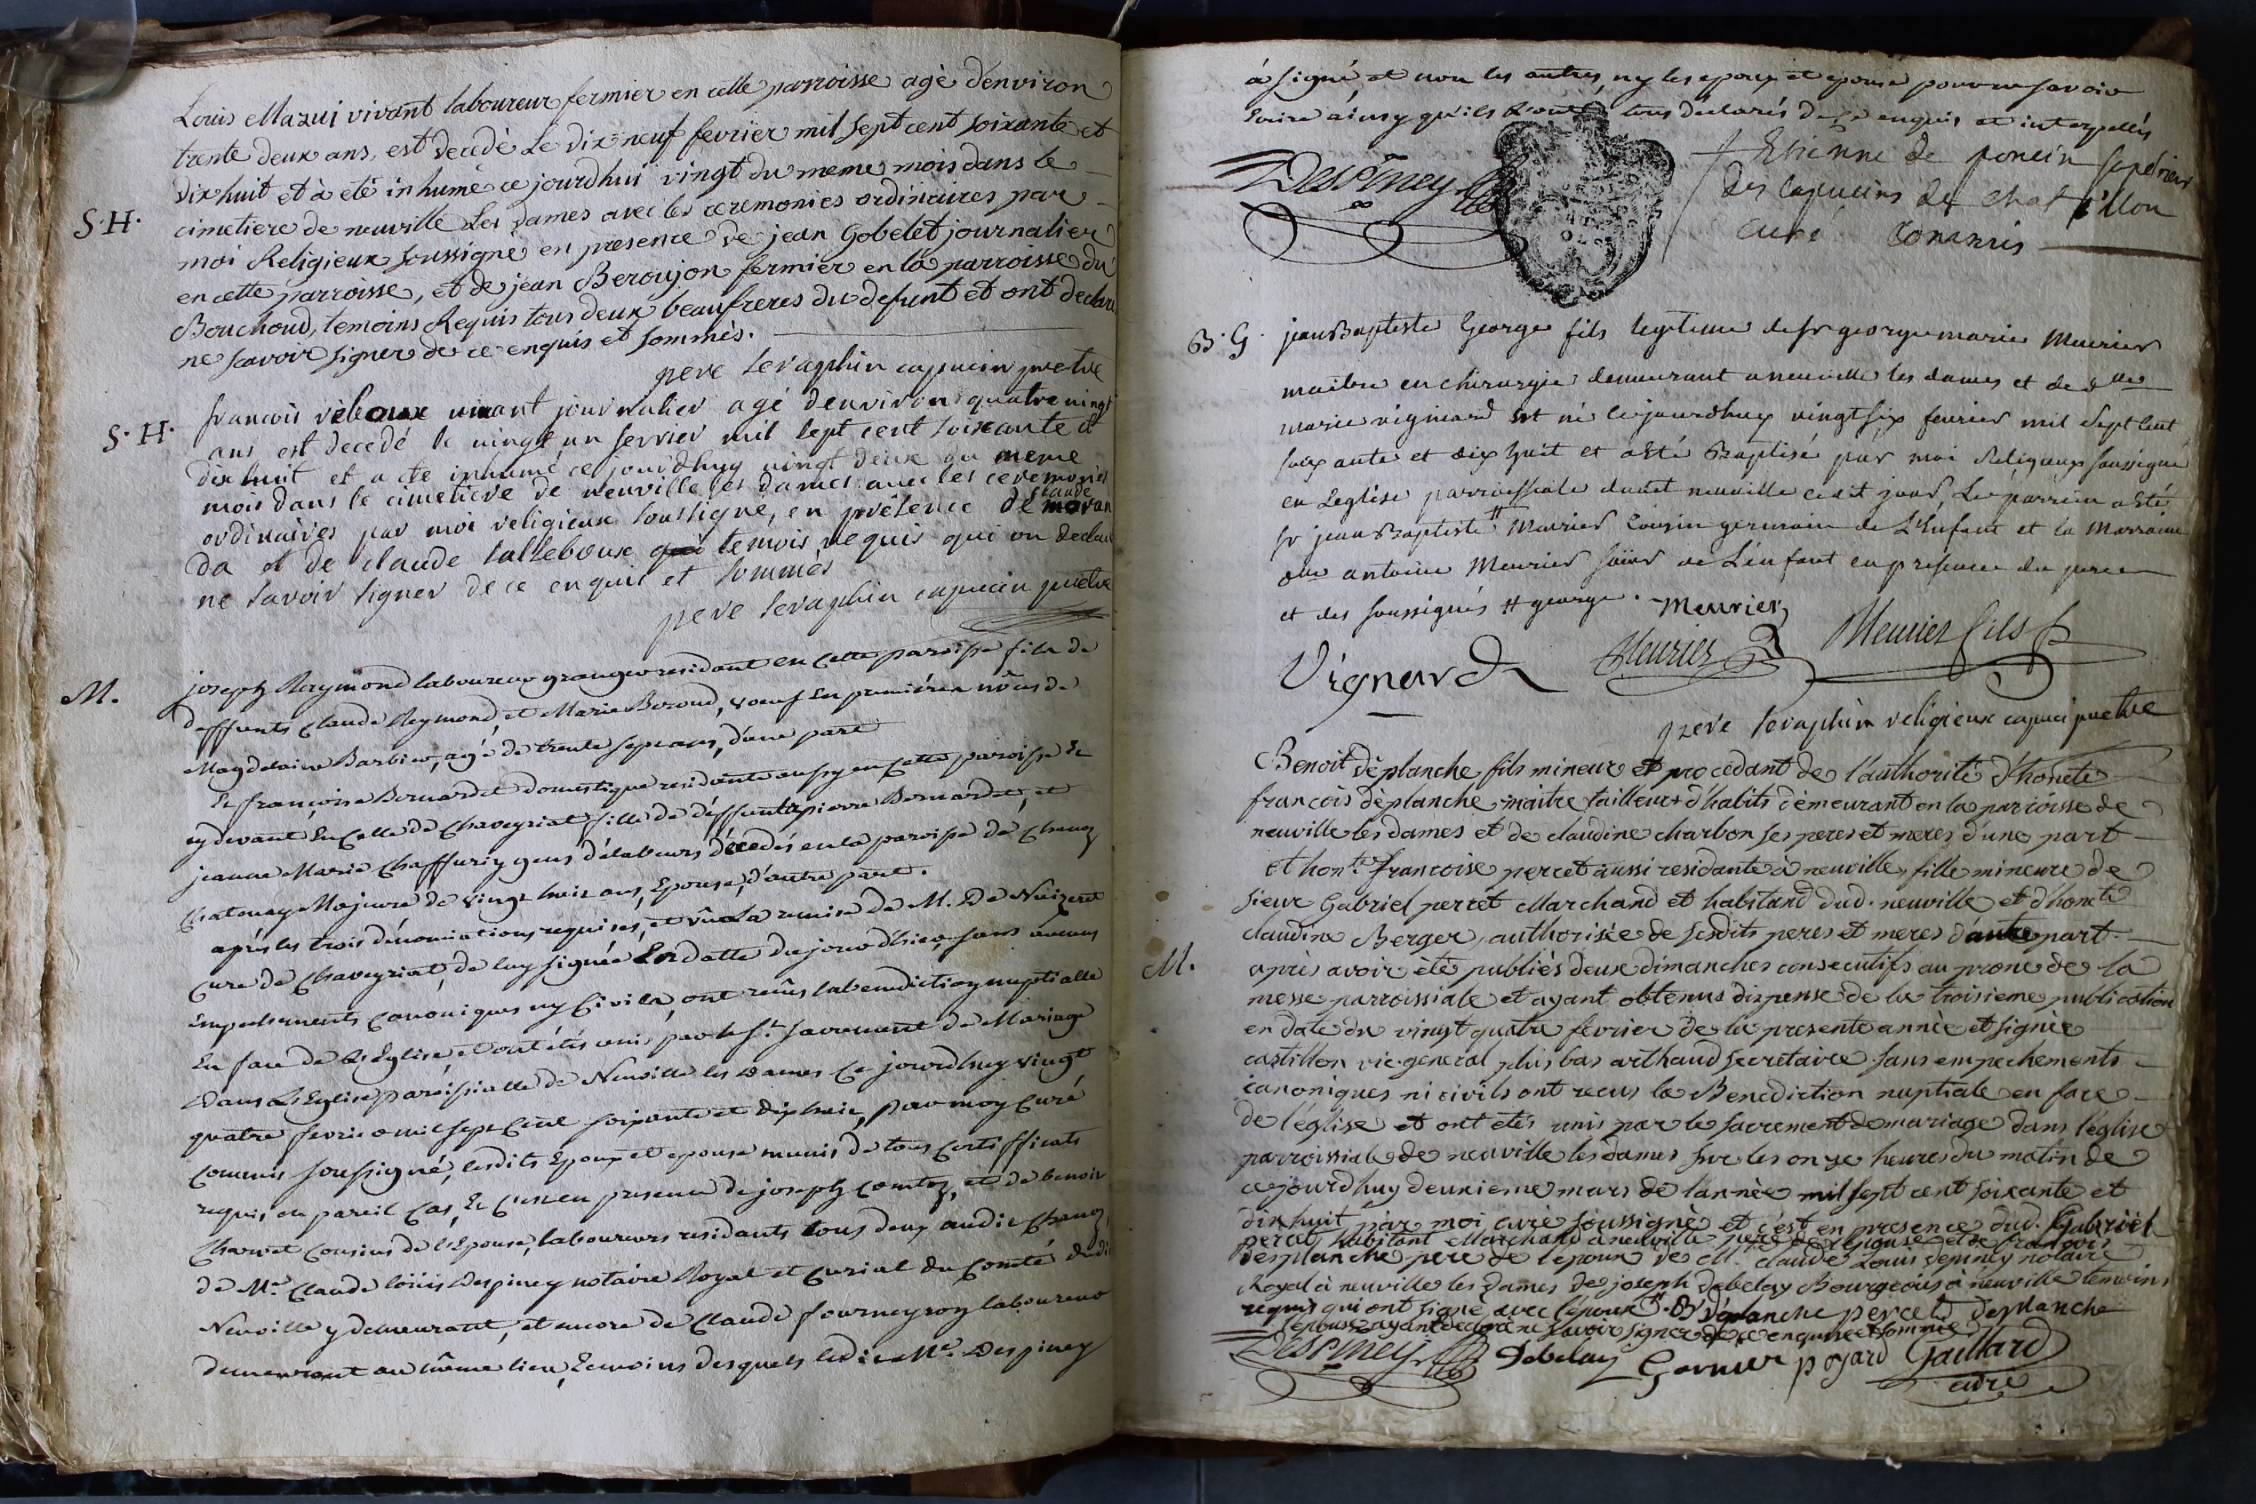 Louis Mazui vivant laboureur fermier en cette parroisse agé d'environ
trente deux ans, est decedé le dix neuf fevrier mil sept cent soixante et
dix huit et à été inhumé ce jourdhui vingt du meme mois dans le
S. H. cimetiere de neuville Les dames avec les ceremonies ordinaires par
moi Religieux soussigné en presence de jean Gobelet journalier
en cette parroisse, et de jean Beroujon fermier en la parroisse du
Bouchoud, temoins Requis tous deux beaufreres du defunt et ont declaré
ne scavoir signer de ce enquis et sommés.
pere seraphin capucin pretre
francois veboux vivant journalier agé denviron quatre vingt
S. H. ans est decedé le vingt un fevrier mil sept cent soixante et
dix huit et a ete inhumé ce jourdhuy vingt deux du meme
mois dans le cimetiere de neuville les dames avec les ceremonies
ordinaires par moi religieux soussigné, en présence de claude moran
da et de claude talleboux temois requis qui on declaré
ne savoir signer de ce enquis et sommés
pere seraphin capucin pretre
M. joseph Reymond laboureur granger residant en cette paroisse fils de
deffunts Claude Reymond, et Marie Beroud, veuf en premières nôces de
Magdelaine Barbier, agé de trente sept ans, d'une part
Et françoise Bernardet domestique residante aussy en cette paroisse et
cy devant en celle de Chaveyriat fille de déffunts pierre Bernardet, et
jeanne Marie Chaffuriy gens de labeurs décedés en la paroisse de Chanoz
Chatenay Majeure de vingt huit ans, Epouse, d'autre part.
après les trois dénonciations requises, et vû la remise de M. De
Curé de Chaveyriat, de luy signée En datte du jour d'hier sans aucuns
Empechements canoniques ny Civils, ont reçus la benediction nuptialle
En face de l'Eglise, et ont étés unis par le St. Sacrement de Mariage
dans L'Eglise paroissialle de Neuville les Dames Ce jourdhuy vingt
quatre fevrier mil sept Cent soixante et dix huit, par moy Curé
Commis soussigné, lesdits Epoux et epouse munis de tous Certifficats
requis en pareil Cas, Et c'est en presence de joseph Comtoz, et de benoit
Charvet Cousins de l'Epouse, laboureurs residants tous deux audit Chanoz,
de Me. Claude loüis Despiney notaire Royal et Curial du Comté dudit
Neuville y demeurant, et encore de Claude fourneyron laboureur
demeurant au même lieu, temoins desquels ledit Me. Despiney
à signé et non les autres, ny les epoux et epouse pour ne savoir
Ecrire ainsy qu'ils l'ont tous déclarés de ce enquis et interpellés
Despiney
f Etienne de poncin superieur
des capucins de chatillon
curé commis
B. G. jean Baptiste George fils legitime de sr george marie Meurier
maitre en chirurgie demeurant a neuville les dames et de dlle
marie vignard est né cejourdhuy vingt six fevrier mil sept cent
soixante et dix huit et a été Baptisé par moi Religieux soussigné
en Leglise parroissiale dudit neuville cedit jour, Le parrein a été
sr jean Baptiste # Meurier Cousin germain de L'Enfant et la Marraine
dlle antoine Meurier soeur de L'enfant en presence du pere
et des soussignés # george. Meurier
Vignard Meurier Meurier fils
pere seraphin religieux capuci pretre
Benoit dèplanche fils mineur et procedant de l'authorité d'honete
francois dèplanche maitre tailleur d'habits dèmeurant en la parroisse de
neuville les dames et de claudine charbon ses peres et meres d'une part
et honte. francoise percet aussi residante à neuville, fille mineure de
sieur Gabriel percet Marchand et habitand dud. neuville et d'honete
claudine Berger, authorisée de sesdits peres et meres d'autre part.
M. après avoir été publiés deux dimanches consecutifs au prone de la
messe parroissiale et ayant obtenus dispense de la troisieme publication
en date du vingt quatre fevrier de la presente année et signée
castillon vic. general plus bas arthaud secretaire sans empechements
canoniques ni civils ont recus la Benediction nuptiale en face
de l'église et ont etés unis par le sacrement de mariage dans l'église
parroissiale de neuville les dames sur les onze heures du matin de
cejourd'huy deuxieme mars de l'année mil sept cent soixante et
dix huit par moi curé soussigné et c'est en presence dud. Gabriel
percet habitant Marchand a neuville pere de l'epouse et de francois
desplanche pere de l'epoux de M. claude Louis depiney notaire
Royal à neuville les dames de joseph Debelay Bourgeois à neuville temoins
requis qui ont signé avec l'epoux #. B. dèplanche percet deplanche
# l'epouse ayant declaré ne savoir signer de ce enquise et sommée
Despiney Debelay Garnier poyard Gaillard
curé